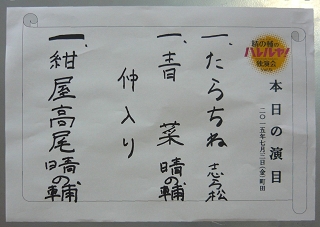 晴の輔の
ハレルヤ!
独演会
本日の演目
二〇一五年七月三日(金)町田
一、たらちね 志ら松
一、青菜 晴の輔
仲入り
一、紺屋高尾 晴の輔